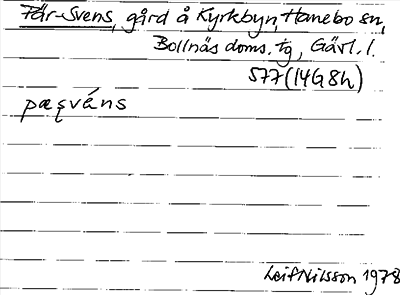 Pär-Svens, gård å Kyrkbyn, Hanebo sn,
Bollnäs doms. tg, Gävl. l.
577 (14G 8h)
pæșváns
Leif Nilsson 1978